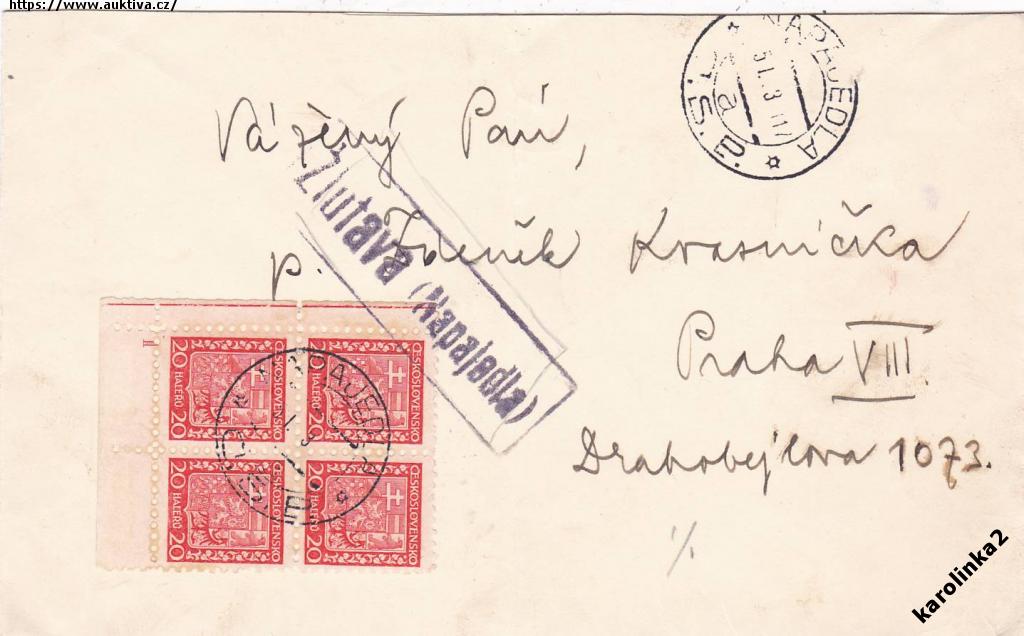 https://www.auktiva.cz/
NAPAJEDLA
Č.S.P.
Vážený Paní,
p. Zdeněk Krasnička
Žlutava (Napajedla)
Praha VIII.
Drahobejlova 1073.
1
ČESKOSLOVENSKO
20 HALÉŘŮ 20
ČESKOSLOVENSKO
20 HALÉŘŮ 20
ČESKOSLOVENSKO
20 HALÉŘŮ 20
ČESKOSLOVENSKO
20 HALÉŘŮ 20
NAPAJEDLA
karolinka2